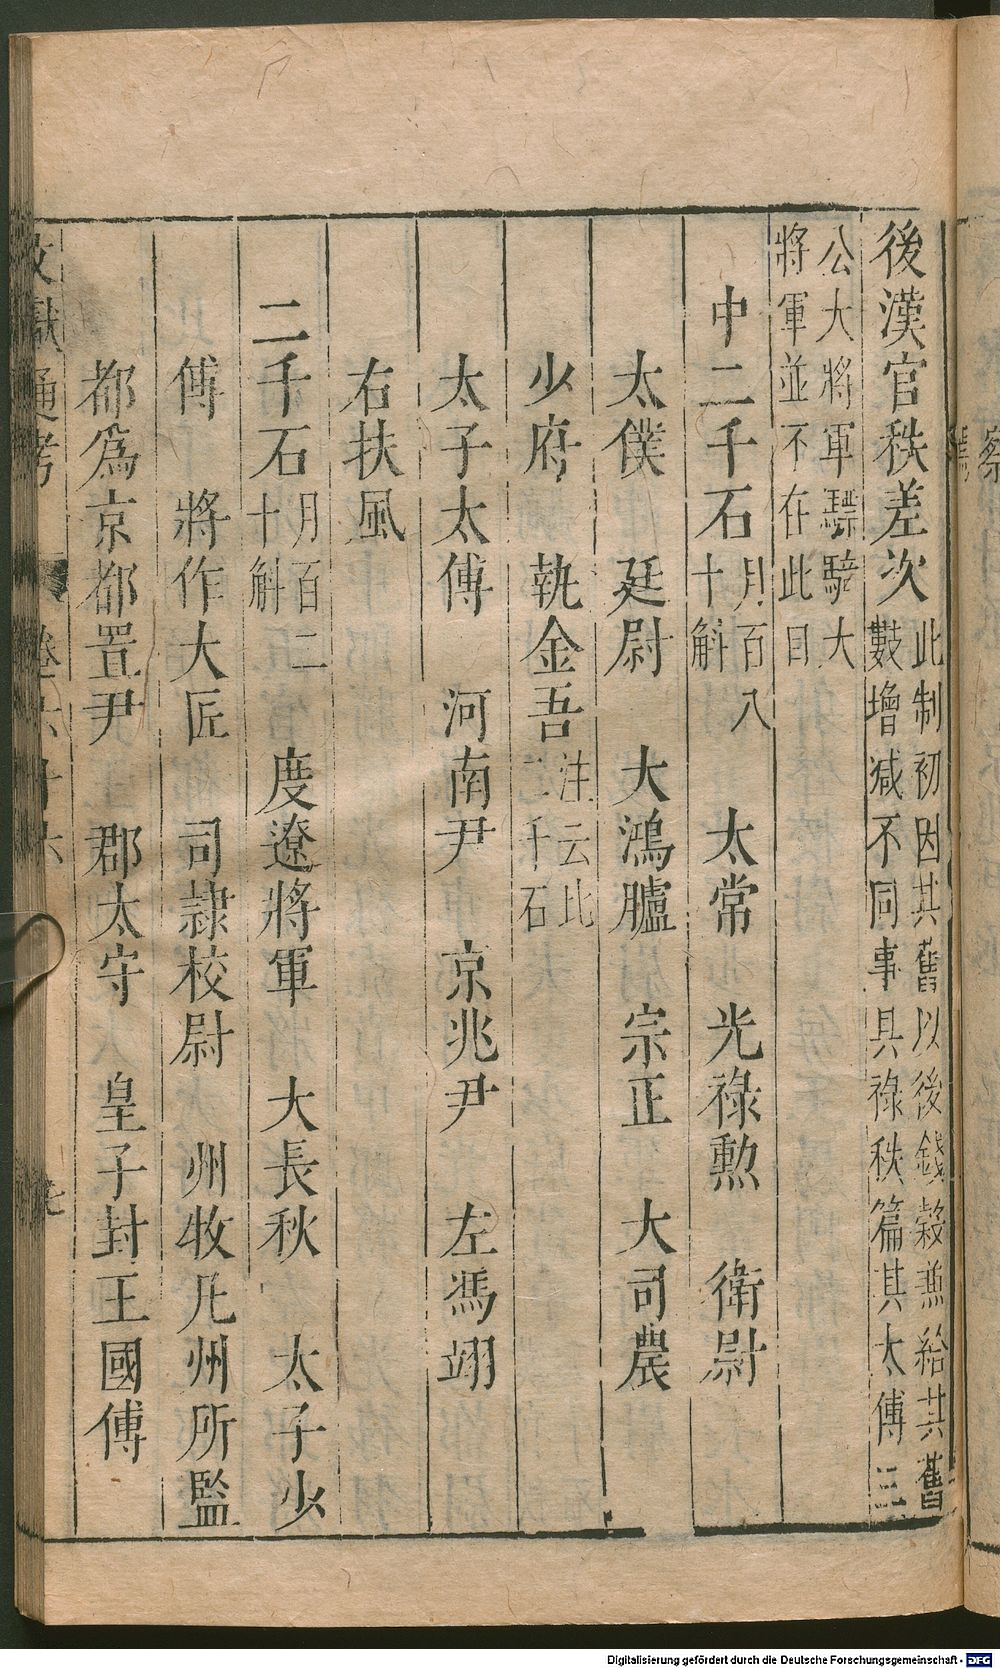 後漢官秩差次此制初因其舊以後錢穀兼給其舊
數增減不同事具祿秩篇其太傅三
公大將軍驃騎大
將軍並不在此目
中二千石月百八十斛 太常 光祿勲 衛尉
太僕 廷尉 大鴻臚 宗正 大司農
少府 執金吾注云比二千石
太子太傅 河南尹 京兆尹 左馮翊
右扶風
二千石月百二十斛 度遼將軍 大長秋 太子少
傅 將作大匠 司隷校尉 州牧凡州所監
都爲京都置尹 郡太守 皇子封王國傅
文獻通考 卷六十六 七
Digitalisierung gefördert durch die Deutsche Forschungsgemeinschaft - DFG